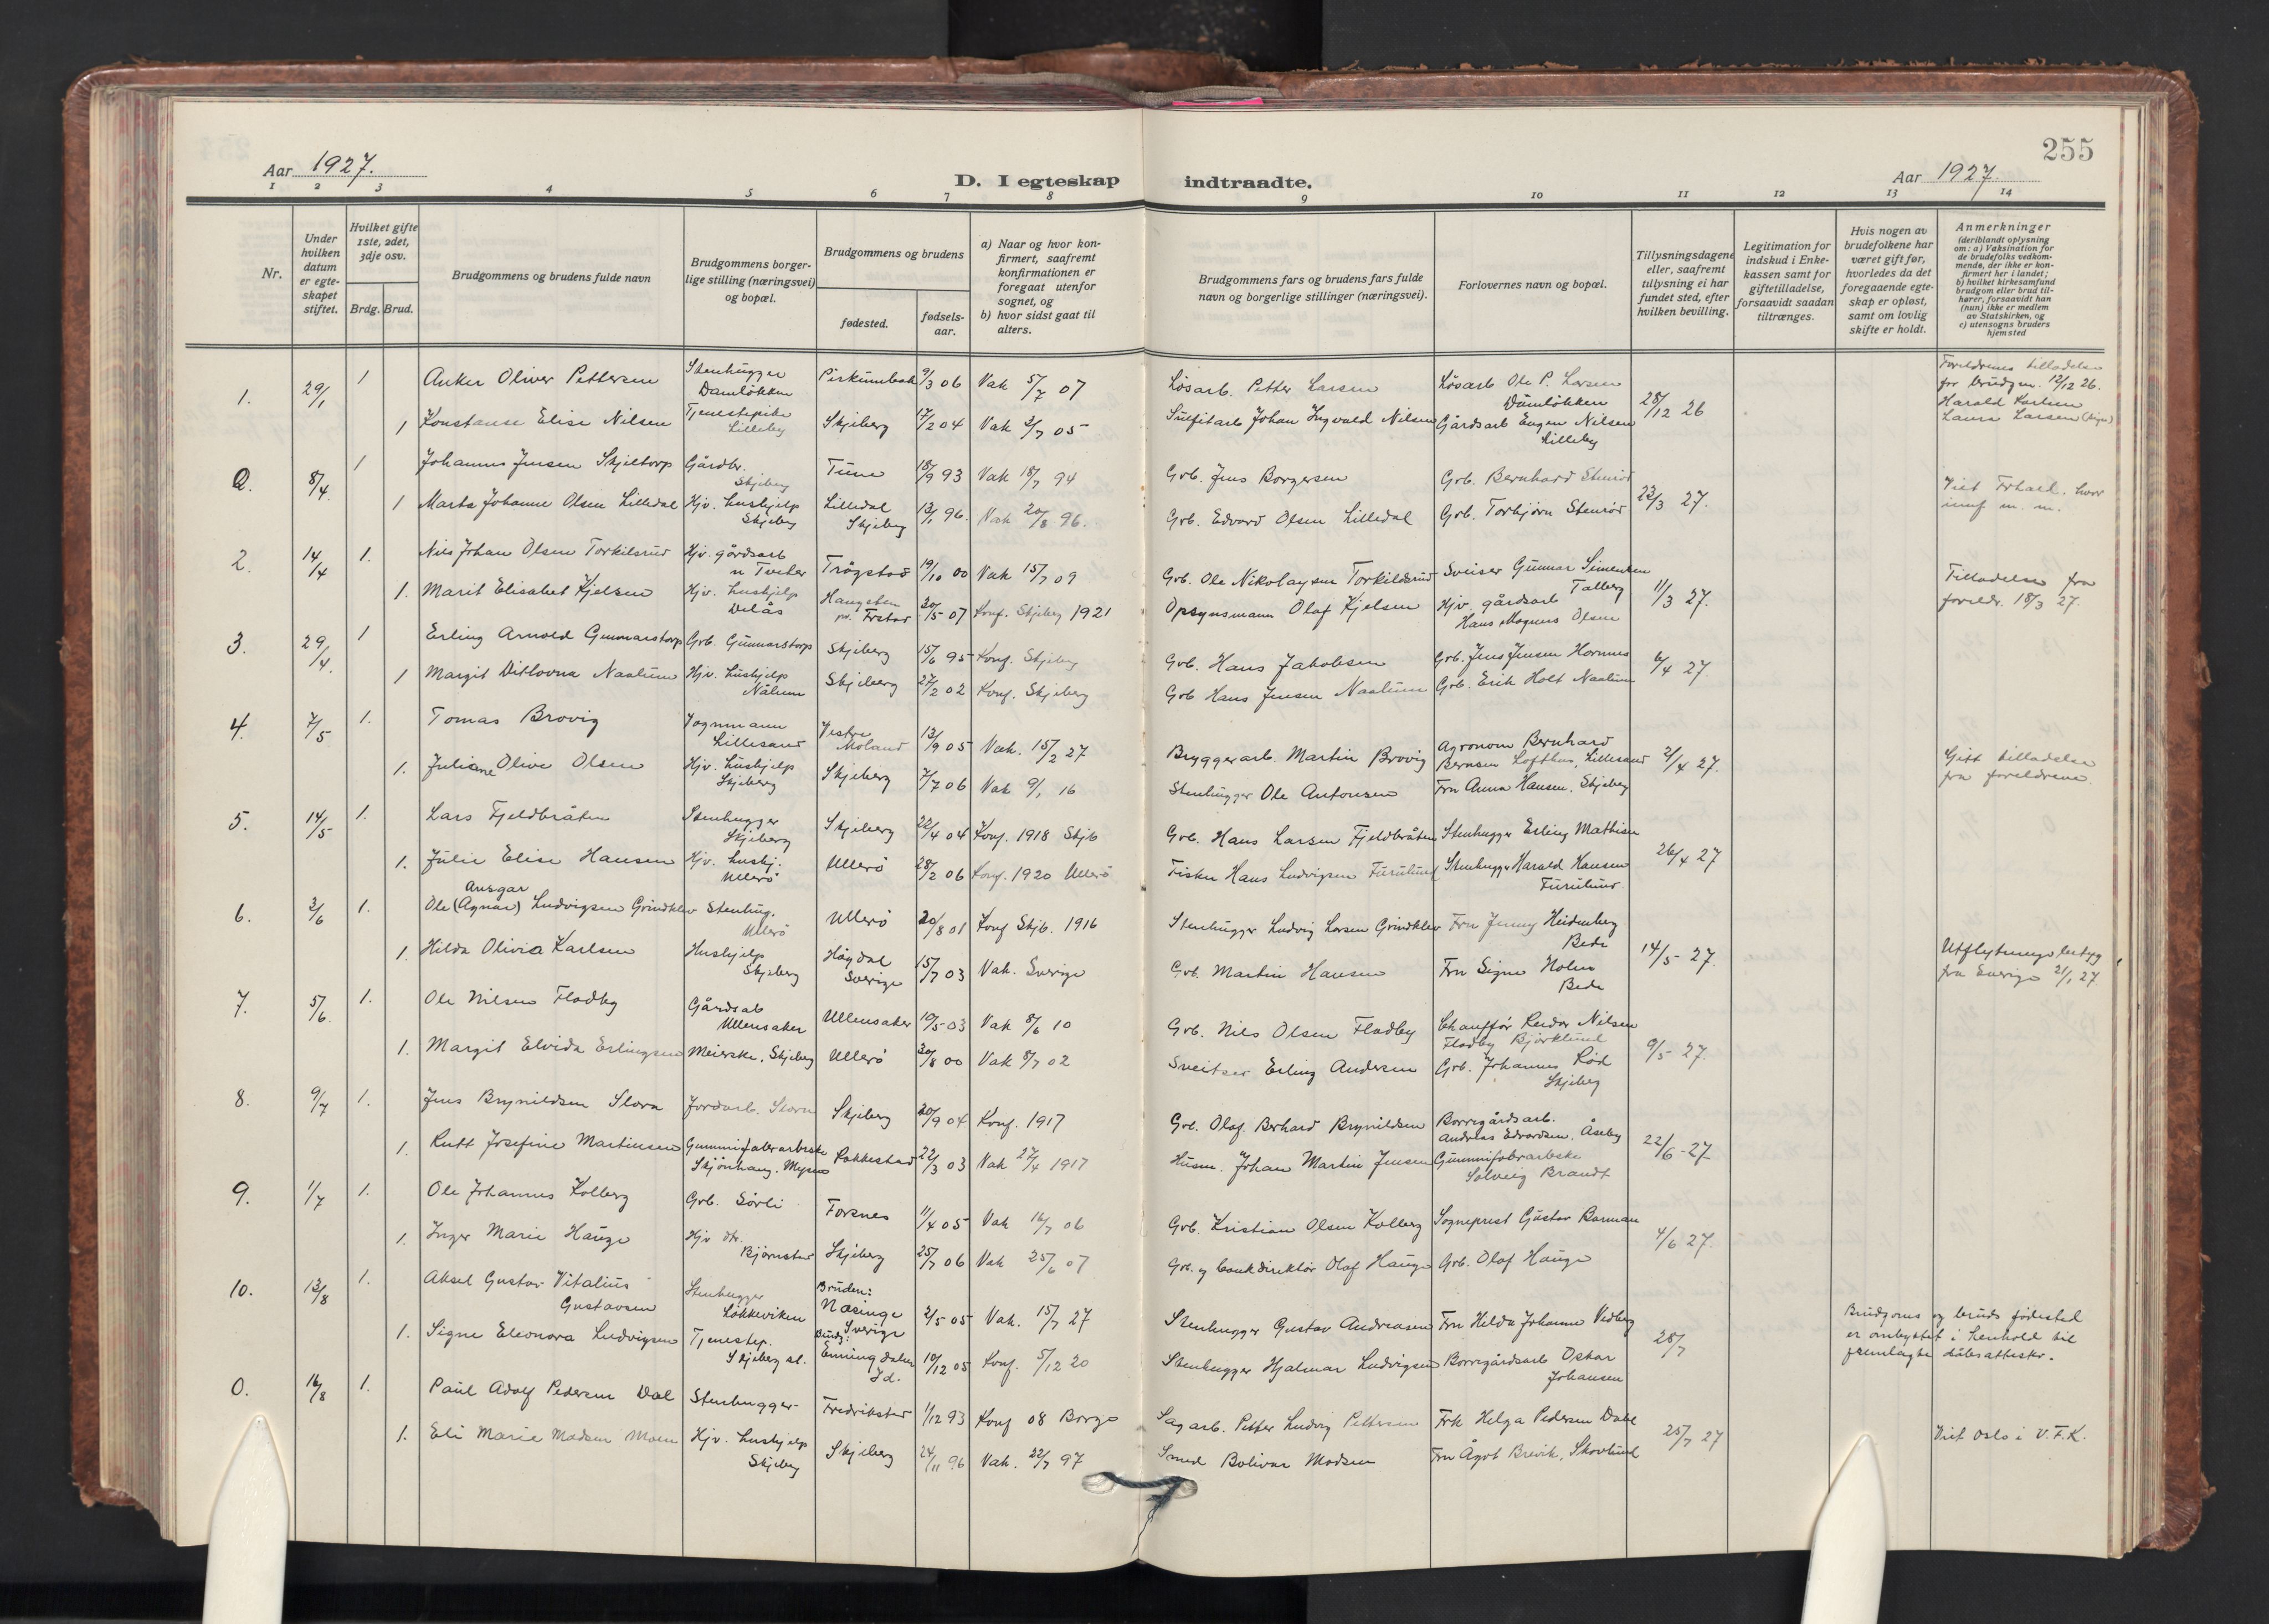 255
Aar 1927.
D. I egteskap indtraadte.
Aar 1927.
1 2 3 4 5 6 7 8 9 10 11 12 13 14
Nr.
Under hvilken datum er egteskapet stiftet.
Hvilket gifte 1ste, 2det, 3dje osv.
Brdg. Brud.
Brudgommens og brudens fulde navn
Brudgommens borgerlige stilling (næringsvei) og bopæl.
Brudgommens og brudens
fødested.
fødselsaar.
a) Naar og hvor konfirmert, saafremt konfirmationen er foregaat utenfor sognet, og
b) hvor sidst gaat til alters.
Brudgommens fars og brudens fars fulde navn og borgerlige stillinger (næringsvei).
Forlovernes navn og bopæl.
Tillysningsdagene eller, saafremt tillysning ei har fundet sted, efter hvilken bevilling.
Legitimation for indskud i Enkekassen samt for giftetilladelse, forsaavidt saadan tiltrænges.
Hvis nogen av brudefolkene har været gift før, hvorledes da det foregaaende egteskap er opløst, samt om lovlig skifte er holdt.
Anmerkninger
(deriblandt oplysning om: a) Vaksination for de brudefolks vedkommende, der ikke er konfirmert her i landet; b) hvilket kirkesamfund brudgom eller brud tilhører, forsaavidt han (hun) ikke er medlem av Statskirken, og c) utensogns bruders hjemsted
1. 29/1 1 Anker Oliver Pettersen Stenhugger Damløkken 9/3 06 Vak 5/7 07 Løsarb. Petter Larsen Løsarb Ole P. Larsen Damløkken 28/12 26 Foreldrenes tilladelse for brudgm. 12/12 26.
Harald Karlsen
Laura Larsen
1 Konstanse Elise Nilsen Tjenestepike Lilleby Skjeberg 17/2 04 Vak 2/7 05 Sulfitarb Johan Ingvald Nilsen Gårdsarb Eugen Nilsen Lilleby
Q. 8/4. 1 Johannes Jensen Skjeltorp Gårdbr. Skjeberg Tune 18/9 93 Vak 18/7 94 Grb. Jens Borgersen Grb. Bernhard Stenrød 23/3 27. Viet
1 Marta Johanne Olsen Lilledal Hjv. hushjelp Skjeberg Lilledal Skjeberg 13/1 96. Vak 20/8 96. Grb. Edvard Olsen Lilledal Grb. Torbjørn Stenrød
2. 14/4 1. Nils Johan Olsen Torkilsrud Hjv. gårdsarb n Tveter Trøgstad 19/10 00 Vak 15/7 09 Grb. Ole Nikolaysen Torkildsrud Sveiser Gunnar Simensen Talberg 11/3 27. Tilladelse fra foreldr. 18/3 27.
1. Marit Elisabet Kjelsen Hjv. hushjelp Delås Haugsten pr. Frstad 20/5 07 Konf. Skjeberg 1921 Opsynsmann Olaf Kjelsen Hjv. gårdsarb Hans Magnus Olsen
3. 29/4. 1 Erling Arnold Gunnarstorp Grb. Gunnarstorp Skjeberg 15/6 95 Konf. Skjeberg Grb. Hans Jakobsen Grb. Jens Jensen Hornnes 6/4 27.
1 Margit Ditlovna Naalum Hjv. hushjelp Nålum Skjeberg 27/2 02 Konf. Skjeberg Grb Hans Jensen Naalum Grb. Erik Holt Naalum
4. 7/5 1. Tomas Brovig Vognmann Lillesand Vestre Moland 13/9 05 Vak. 15/2 27 Bryggerarb. Martin Brovig Agronom Bernhard Berntsen Lofthus, Lillesand 2/4 27. Gitt tilladelse fra foreldrene
1. Juliane Olive Olsen Hjv. hushjelp Skjeberg Skjeberg 7/7 06 Vak 9/1 16 Stenhugger Ole Antonsen Fru Anna Hansen, Skjeberg
5. 14/5 1. Lars Fjeldbråten Stenhugger Skjeberg Skjeberg 22/4 04 Konf. 1918 Skjb Grb. Hans Larsen Fjeldbråten Stenhugger Erling Mathisen 26/4 27
1. Julie Elise Hansen Hjv. hushj. Ullerø Ullerø 28/2 06 Konf. 1920 Ullerø Fisker Hans Ludvigsen Furulund Stenhugger Harald Hansen Furulund
6. 2/6 1. Ole (Agnar) Ansgar Ludvigsen Grindklev Stenhug. Ullerø Ullerø 20/8 01 Konf Skjb. 1916 Stenhugger Ludvig Larsen Grindklev Fru Jenny Heidenberg Bede 14/5 27. Utflytningsbetyg fra Sverige 21/1 27.
1. Hilda Olivia Karlsen Hushjelp Skjeberg Högdal Sverige 15/7 03 Vak. Sverige Grb. Martin Hansen Fru Signe Holm Bede
7. 5/6. 1. Ole Nilsen Fladby Gårdsab Ullensaker Ullensaker 19/5 03 Vak 8/6 10 Grb. Nils Olsen Fladby Chauffør Reidar Nilsen Fladby Bjørklund 9/5 27.
1. Margit Elvida Erlingsen Meierske, Skjeberg Ullerø 30/8 00 Vak 8/7 02 Sveitser Erling Andersen Grb. Johannes Rød Skjeberg
8. 9/7 1. Jens Brynildsen Slora Jordarb. Slora Skjeberg 20/9 04 Konf. 1917 Grb. Olaf Berhard Brynildsen Borregårdsarb. Andreas Edvardsen, Åseby 22/6 - 27
1. Rutt Josefine Martinsen Gummifabrarbeiske Skjønhaug, Mysen Rakkestad 22/3 03 Vak 27/4 1917 Husm. Johan Martin Jensen Gummifabrarbeske Solveig Brandt
9. 1/7 1. Ole Johannes Kolberg Grb. Sørli Forsnes 11/4 05 Vak 16/7 06 Grb. Kristian Olsen Kolberg Sogneprest Gustav Barman 4/6 27.
1. Inger Marie Hauge Hjv dtr. Bjørnstad Skjeberg 25/7 06 Vak 25/6 07 Grb. og bankdirektør Olaf Hauge Grb. Olaf Hauge
10. 13/8 1. Aksel Gustav Vitalius Gustavsen Stenhugger Løkkeviken Bruden: Næsinge Sverige 2/5 05 Vak. 15/7 27 Stenhugger Gustav Andreasen Fru Hilda Johanne Vedberg 28/7 Brudgoms og bruds fødested er ombyttet i henhold til fremlagte dåbsattester.
1. Signe Eleonora Ludvigsen Tjenestep. Skjeberg st. Brudg: Enningdalen Id. 10/12 05 Konf. 5/12 20 Stenhugger Hjalmar Ludvigsen Borregårdsarb Oskar Johansen
0. 16/8 1. Paul Adolf Pedersen Dal Stenhugger Fredrikstad 1/12 93 Konf 08 Borge Sagarb. Petter Ludvig Pettersen Frk Helga Pedersen Dahl 25/7 27 Viet Oslo i V.F.K.
1. Eli Marie Madsen Moen Hjv. hushjelp Skjeberg Skjeberg 24/11 96 Vak. 22/7 97 Smed Bolivar Madsen Fru Ågot Brevik, Skovlund